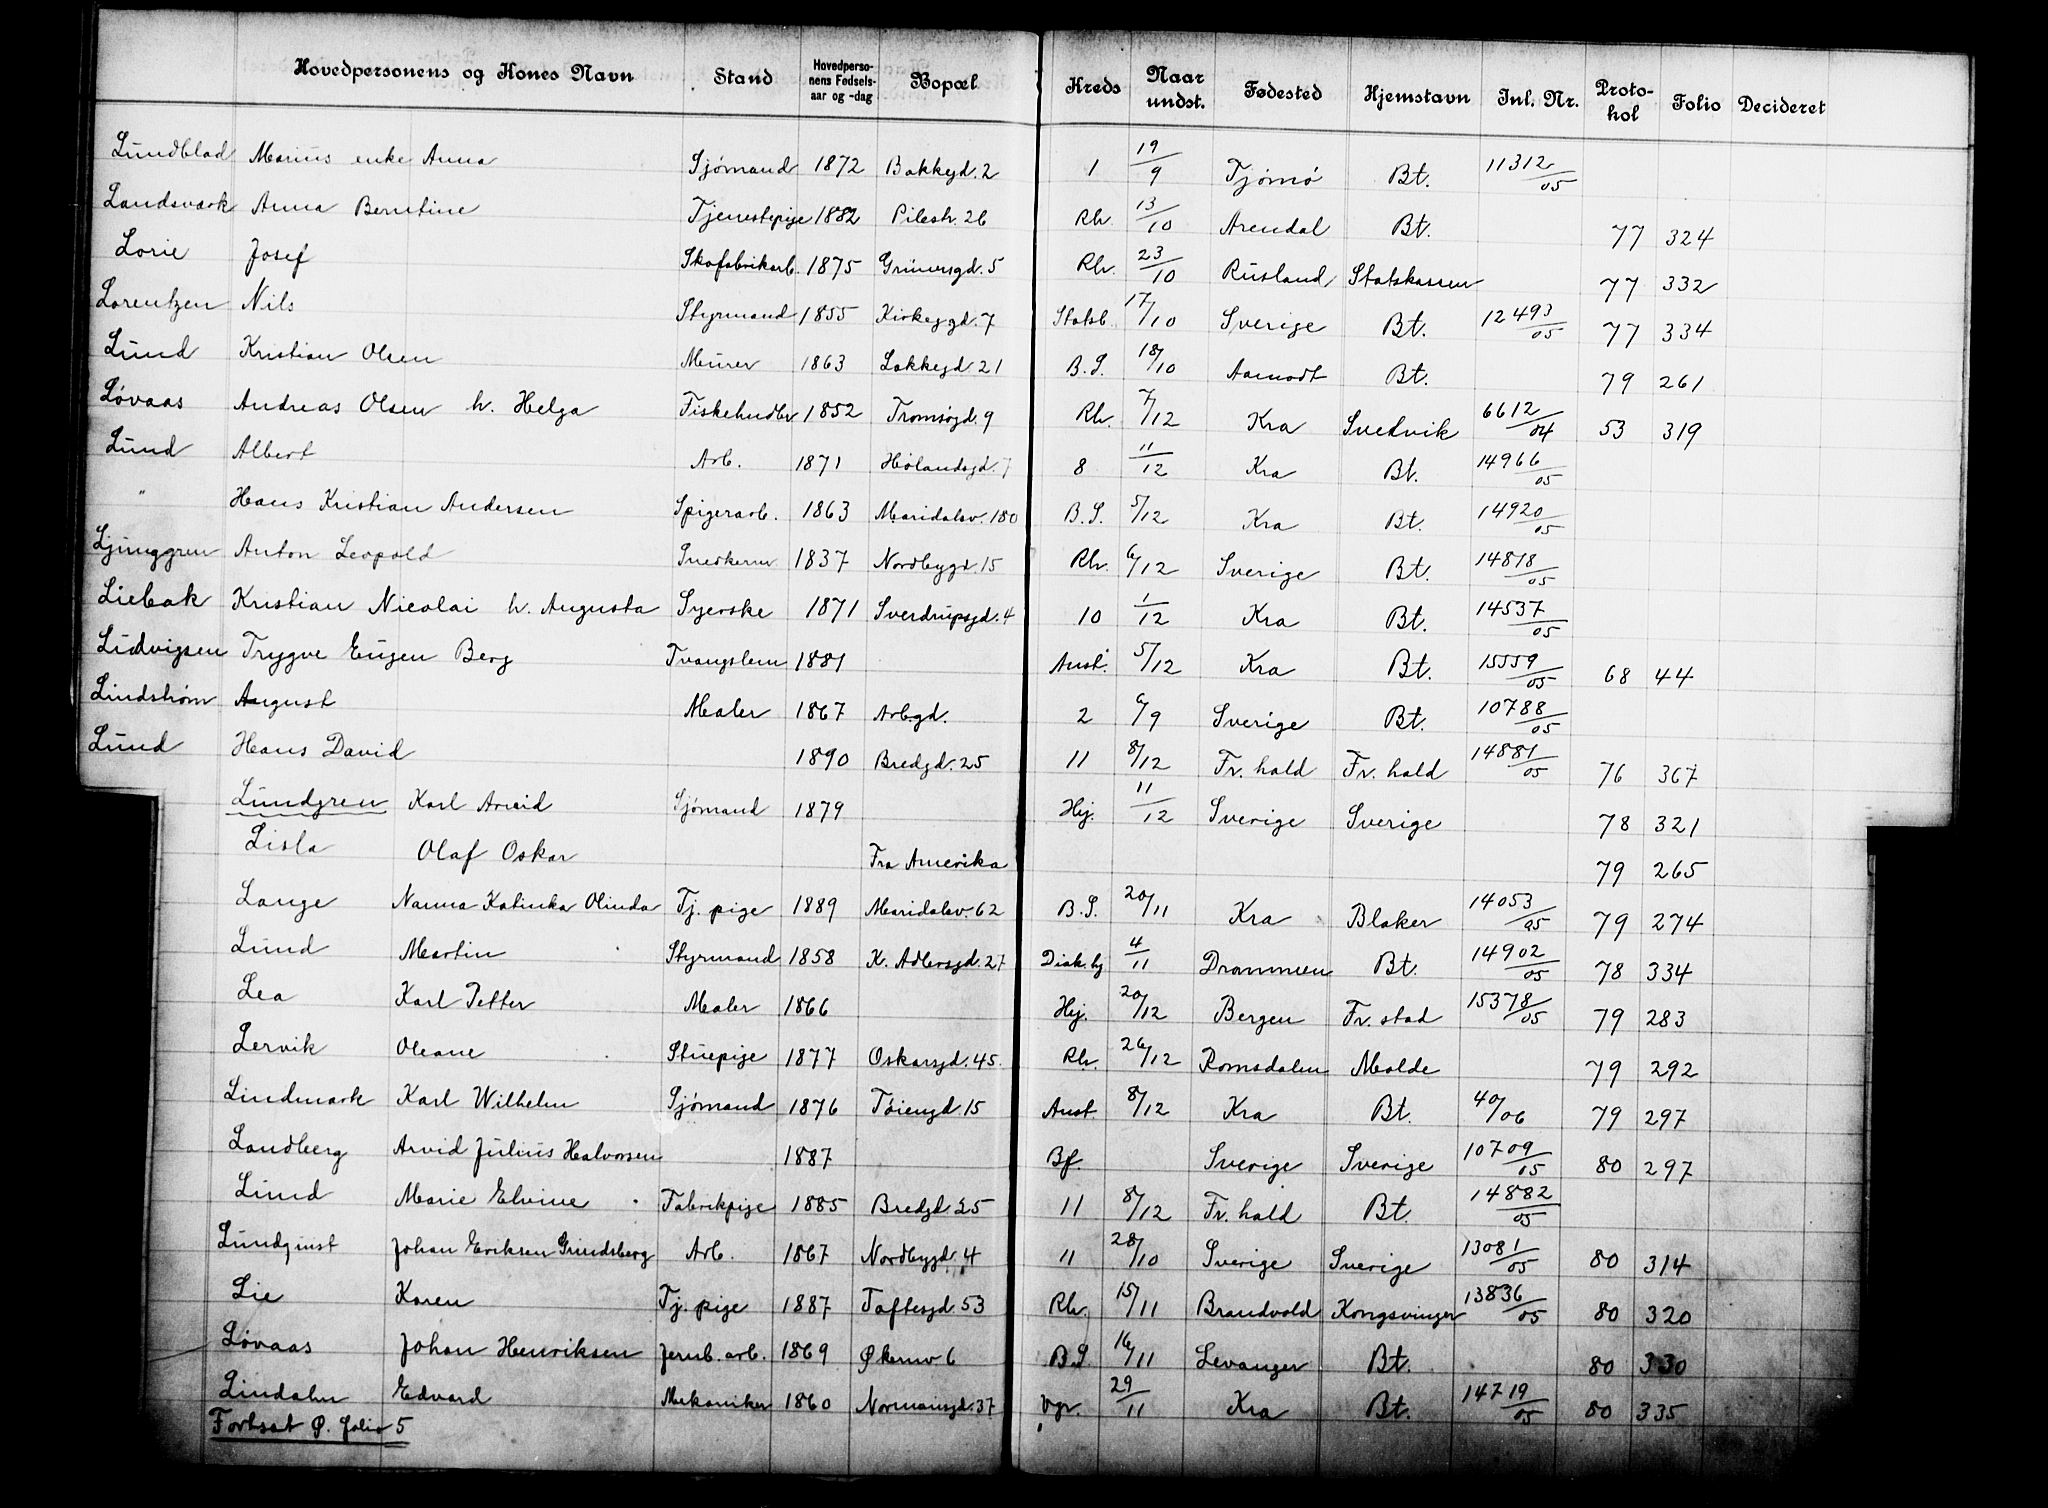 Hovedpersonens og Kones Navn Stand Hovedperso-nens Fødsels-aar og -dag Bopæl Kreds Naar undst. Fødested Hjemstavn Inl. Nr. Proto-kol Folio Decideret
Lundblad Marius enke Anna Sjømand 1872 Bakkegd. 2 1 19/9 Tjømø Bt. 11312/05
Landsværk Anna Berntine Tjenestepige 1882 Pilestr. 26 Rh. 13/10 Arendal Bt. 77 324
Lorie Josef Skofabrikarb. 1875 Grünersgd. 5 Rh. 23/10 Rusland Statskassen 77 332
Lorentzen Nils Styrmand 1855 Kirkeggd. 7 Statsb. 17/10 Sverige Bt. 12493/05 77 334
Lund Kristian Olsen Murer 1863 Lakkegd. 21 B.S. 18/10 Aamodt Bt. 79 261
Løvaas Andreas Olsen h. Helga Fiskehndlr 1852 Tromsøgd. 9 Rh. 7/12 Kra Svedvik 6612/04 53 319
Lund Albert Arb. 1871 Hølandsgd. 7 8 11/12 Kra Bt. 14966/05
" Hans Kristian Andersen Spigerarb. 1863 Maridalsv. 180 B.S. 5/12 Kra Bt. 14920/05
Ljunggren Anton Leopold Snedkersv 1837 Nordbygd. 15 Rh. 6/12 Sverige Bt. 14818/05
Liebak Kristian Nicolai h. Augusta Syerske 1871 Sverdrupsgd. 4 10 1/12 Kra Bt. 14537/05
Ludvigsen Trygve Eugen Berg Tvangslem 1881 Anst. 5/12 Kra Bt. 15559/05 68 44
Lindstrøm August Maler 1867 Arbgd. 2 6/9 Sverige Bt. 10788/05
Lund Hans David 1890 Bredgd. 25 11 8/12 Fr. hald Fr. hald 14881/05 76 367
Lundgren Karl Arvid Sjømand 1879 Hej. 11/12 Sverige Sverige 78 321
Lisla Olaf Oskar Fra Amerika 79 265
Lange Nanna Katinka Olinda Tj. pige 1889 Maridalsv. 62 B.S. 20/11 Kra Blaker 14053/05 79 274
Lund Martin Styrmand 1858 K. Adlersgd. 27 Diak. hj 4/11 Drammen Bt. 14902/05 78 334
Lea Karl Petter Maler 1866 Hej. 20/12 Bergen Fr. stad 15378/05 79 283
Lervik Oleane Stuepige 1877 Oskarsgd. 45. Rh. 26/12 Romsdalen Molde 79 292
Lindmark Karl Wilhelm Sjømand 1876 Tøiengd. 15 Anst. 8/12 Kra Bt. 40/06 79 297
Landberg Arvid Julius Halvorsen 1887 Bf. Sverige Sverige 10709/05 80 297
Lund Marie Elvine Fabrikpige 1885 Bredgd. 25 11 8/12 Fr. hald Bt. 14882/05
Lundqvist Johan Eriksen Grindsberg Arb. 1867 Nordbygd. 4 11 28/10 Sverige Sverige 13081/05 80 314
Lie Karen Tj. pige 1887 Toftesgd. 53 Rh. 15/11 Brandvold Kongsvinger 13836/05 80 320
Løvaas Johan Henriksen Jernb. arb. 1869 Økernv 6 B.S. 16/11 Levanger Bt. 80 330
Lindalm Edvard Mekaniker 1860 Normansgd. 37 Vgr. 29/11 Kra Bt. 14719/05 80 335
Fortsat P. folio 5